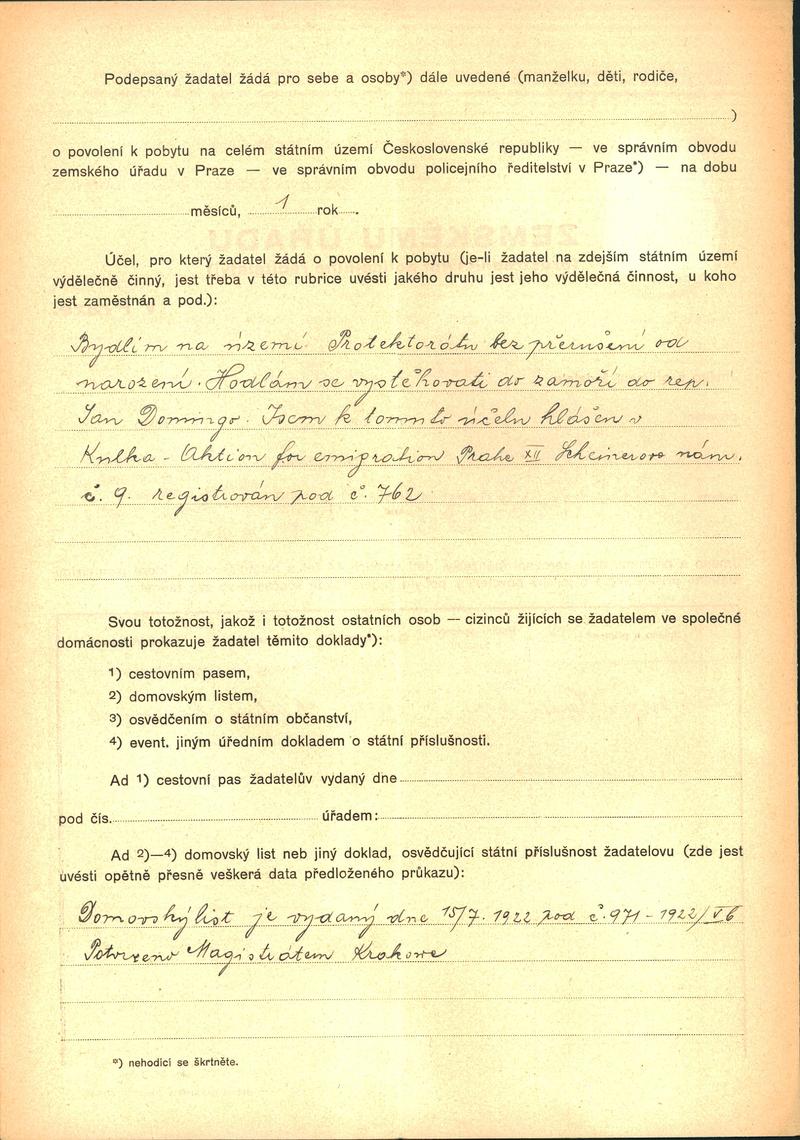 Podepsaný žadatel žádá pro sebe a osoby*) dále uvedené (manželku, děti, rodiče,
)
o povolení k pobytu na celém státním území Československé republiky — ve správním obvodu
zemského úřadu v Praze — ve správním obvodu policejního ředitelství v Praze*) — na dobu
měsíců, 1 rok
Účel, pro který žadatel žádá o povolení k pobytu (je-li žadatel na zdejším státním území
výdělečně činný, jest třeba v této rubrice uvésti jakého druhu jest jeho výdělečná činnost, u koho
jest zaměstnán a pod.):
Bydlím na území Protektorátu bez přerušení od
narození. Hodlám se vystěhovati do zámoří do rep.
San Domingo. Jsem k tomuto účelu hlášen v
Aktion for emigration Prahe XII Scheinerovo nám.
č. 9. registrován pod č. 762
Svou totožnost, jakož i totožnost ostatních osob — cizinců žijících se žadatelem ve společné
domácnosti prokazuje žadatel těmito doklady*):
1) cestovním pasem,
2) domovským listem,
3) osvědčením o státním občanství,
4) event. jiným úředním dokladem o státní příslušnosti.
Ad 1) cestovní pas žadatelův vydaný dne
pod čís. úřadem:
Ad 2)—4) domovský list neb jiný doklad, osvědčující státní příslušnost žadatelovu (zde jest
uvésti opětně přesně veškerá data předloženého průkazu):
Domovský list je vydaný dne 15/7. 1922 pod č. 971 - 1922/VI6
Potvrzeno Magistrátem Krakowe
*) nehodící se škrtněte.